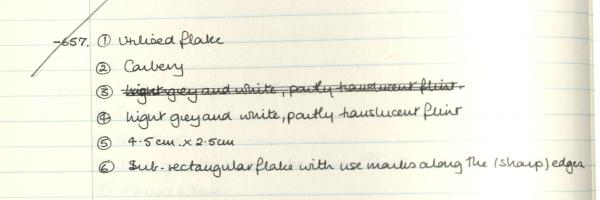 -657. ① Utilised flake
② Carbery
③ Light grey and white, partly translucent flint.
④ Light grey and white, partly translucent flint
⑤ 4.5cm. x 2.5cm
⑥ Sub-rectangular flake with use marks along the (sharp) edges